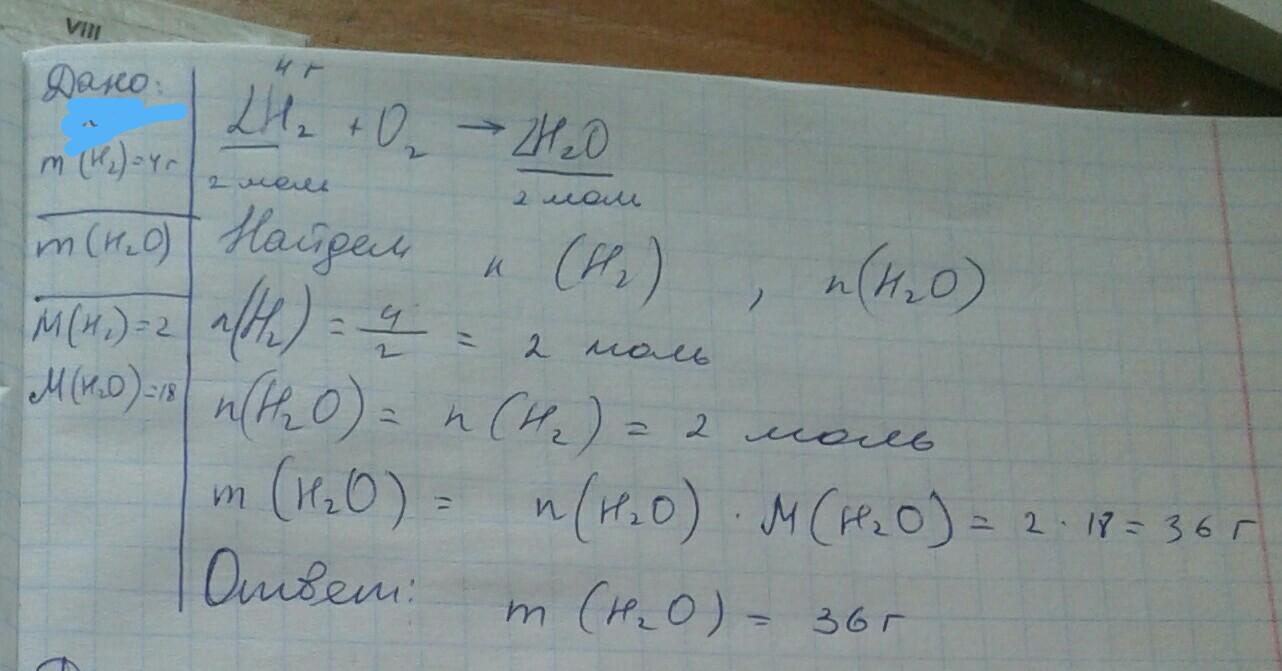 VIII
Дано:
m (H₂) = 4 г
m (H₂O)
M(H₂) = 2
M(H₂O) = 18
4 г
2H₂ + O₂ → 2H₂O
2 моль 2 моль
Найдем n (H₂) , n(H₂O)
n(H₂) = 4/2 = 2 моль
n(H₂O) = n (H₂) = 2 моль
m (H₂O) = n(H₂O) · M(H₂O) = 2 · 18 = 36 г
Ответ: m (H₂O) = 36 г